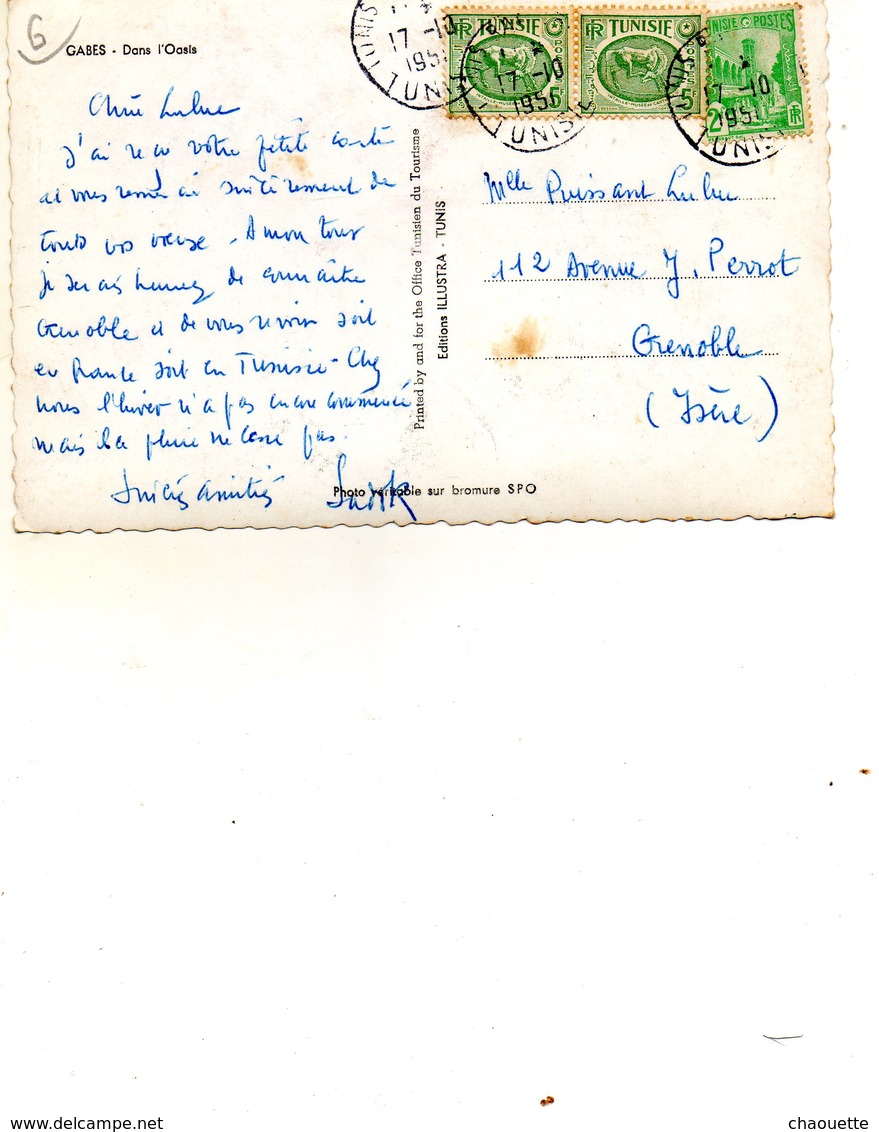 6
GABES - Dans l'Oasis
Chère Lulue
J'ai reçu votre petite carte
et vous remercie sincèrement de
touts vos vœux. A mon tour
je serais heureux de connaître
Grenoble et de vous revoir soit
en France soit en Tunisie - Chez
nous l'hiver n'a pas encore commencé
mais la pluie ne cesse pas.
amitiés
Photo véritable sur bromure SPO
Printed by and for the Office Tunisien du Tourisme
Editions ILLUSTRA - TUNIS
RF TUNISIE
5F
RF TUNISIE
5F
TUNISIE POSTES
2F
RF
TUNIS
17 -10
195
TUNISIE
17 -10
1955
TUNISIE
TUNIS
17 -10
195
TUNISIE
Mlle Puissant Lulue
112 Avenue J. Perrot
Grenoble
(Isère)
chaouette